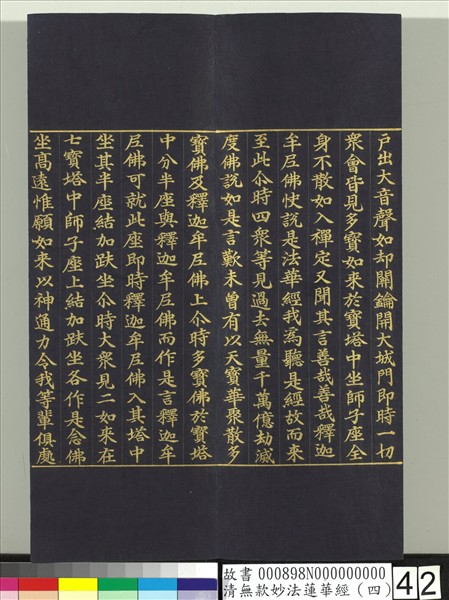 戶出大音聲如却關鑰開大城門即時一切
衆會皆見多寶如來於寶塔中坐師子座全
身不散如入禪定又聞其言善哉善哉釋迦
牟尼佛快說是法華經我爲聽是經故而來
至此尒時四衆等見過去無量千萬億劫滅
度佛說如是言歎未曾有以天寶華聚散多
寶佛及釋迦牟尼佛上尒時多寶佛於寶塔
中分半座與釋迦牟尼佛而作是言釋迦牟
尼佛可就此座即時釋迦牟尼佛入其塔中
坐其半座結加趺坐尒時大衆見二如來在
七寶塔中師子座上結加趺坐各作是念佛
坐高遠惟願如來以神通力令我等輩俱處
故書 000898N000000000
清無款妙法蓮華經(四)
42